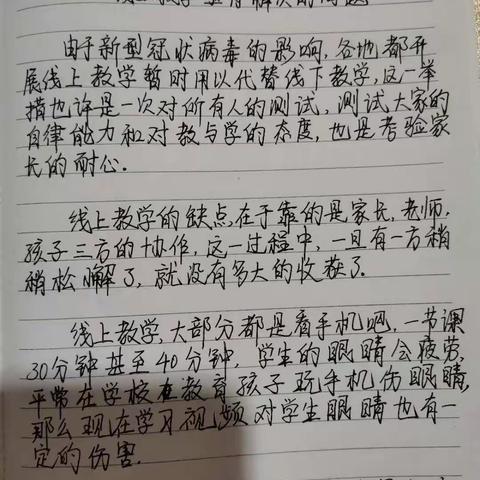 由于新型冠状病毒的影响,各地都开
展线上教学暂时用以代替线下教学,这一举
措也许是一次对所有人的测试,测试大家的
自律能力和对教与学的态度,也是考验家
长的耐心.
线上教学的缺点,在于靠的是家长,老师,
孩子三方的协作,这一过程中,一旦有一方稍
稍松懈了,就没有多大的收获了.
线上教学,大部分都是看手机吧,一节课
30分钟甚至40分钟,学生的眼睛会疲劳,
平常在学校在教育孩子玩手机伤眼睛,
那么现在学习视频对学生眼睛也有一
定的伤害.